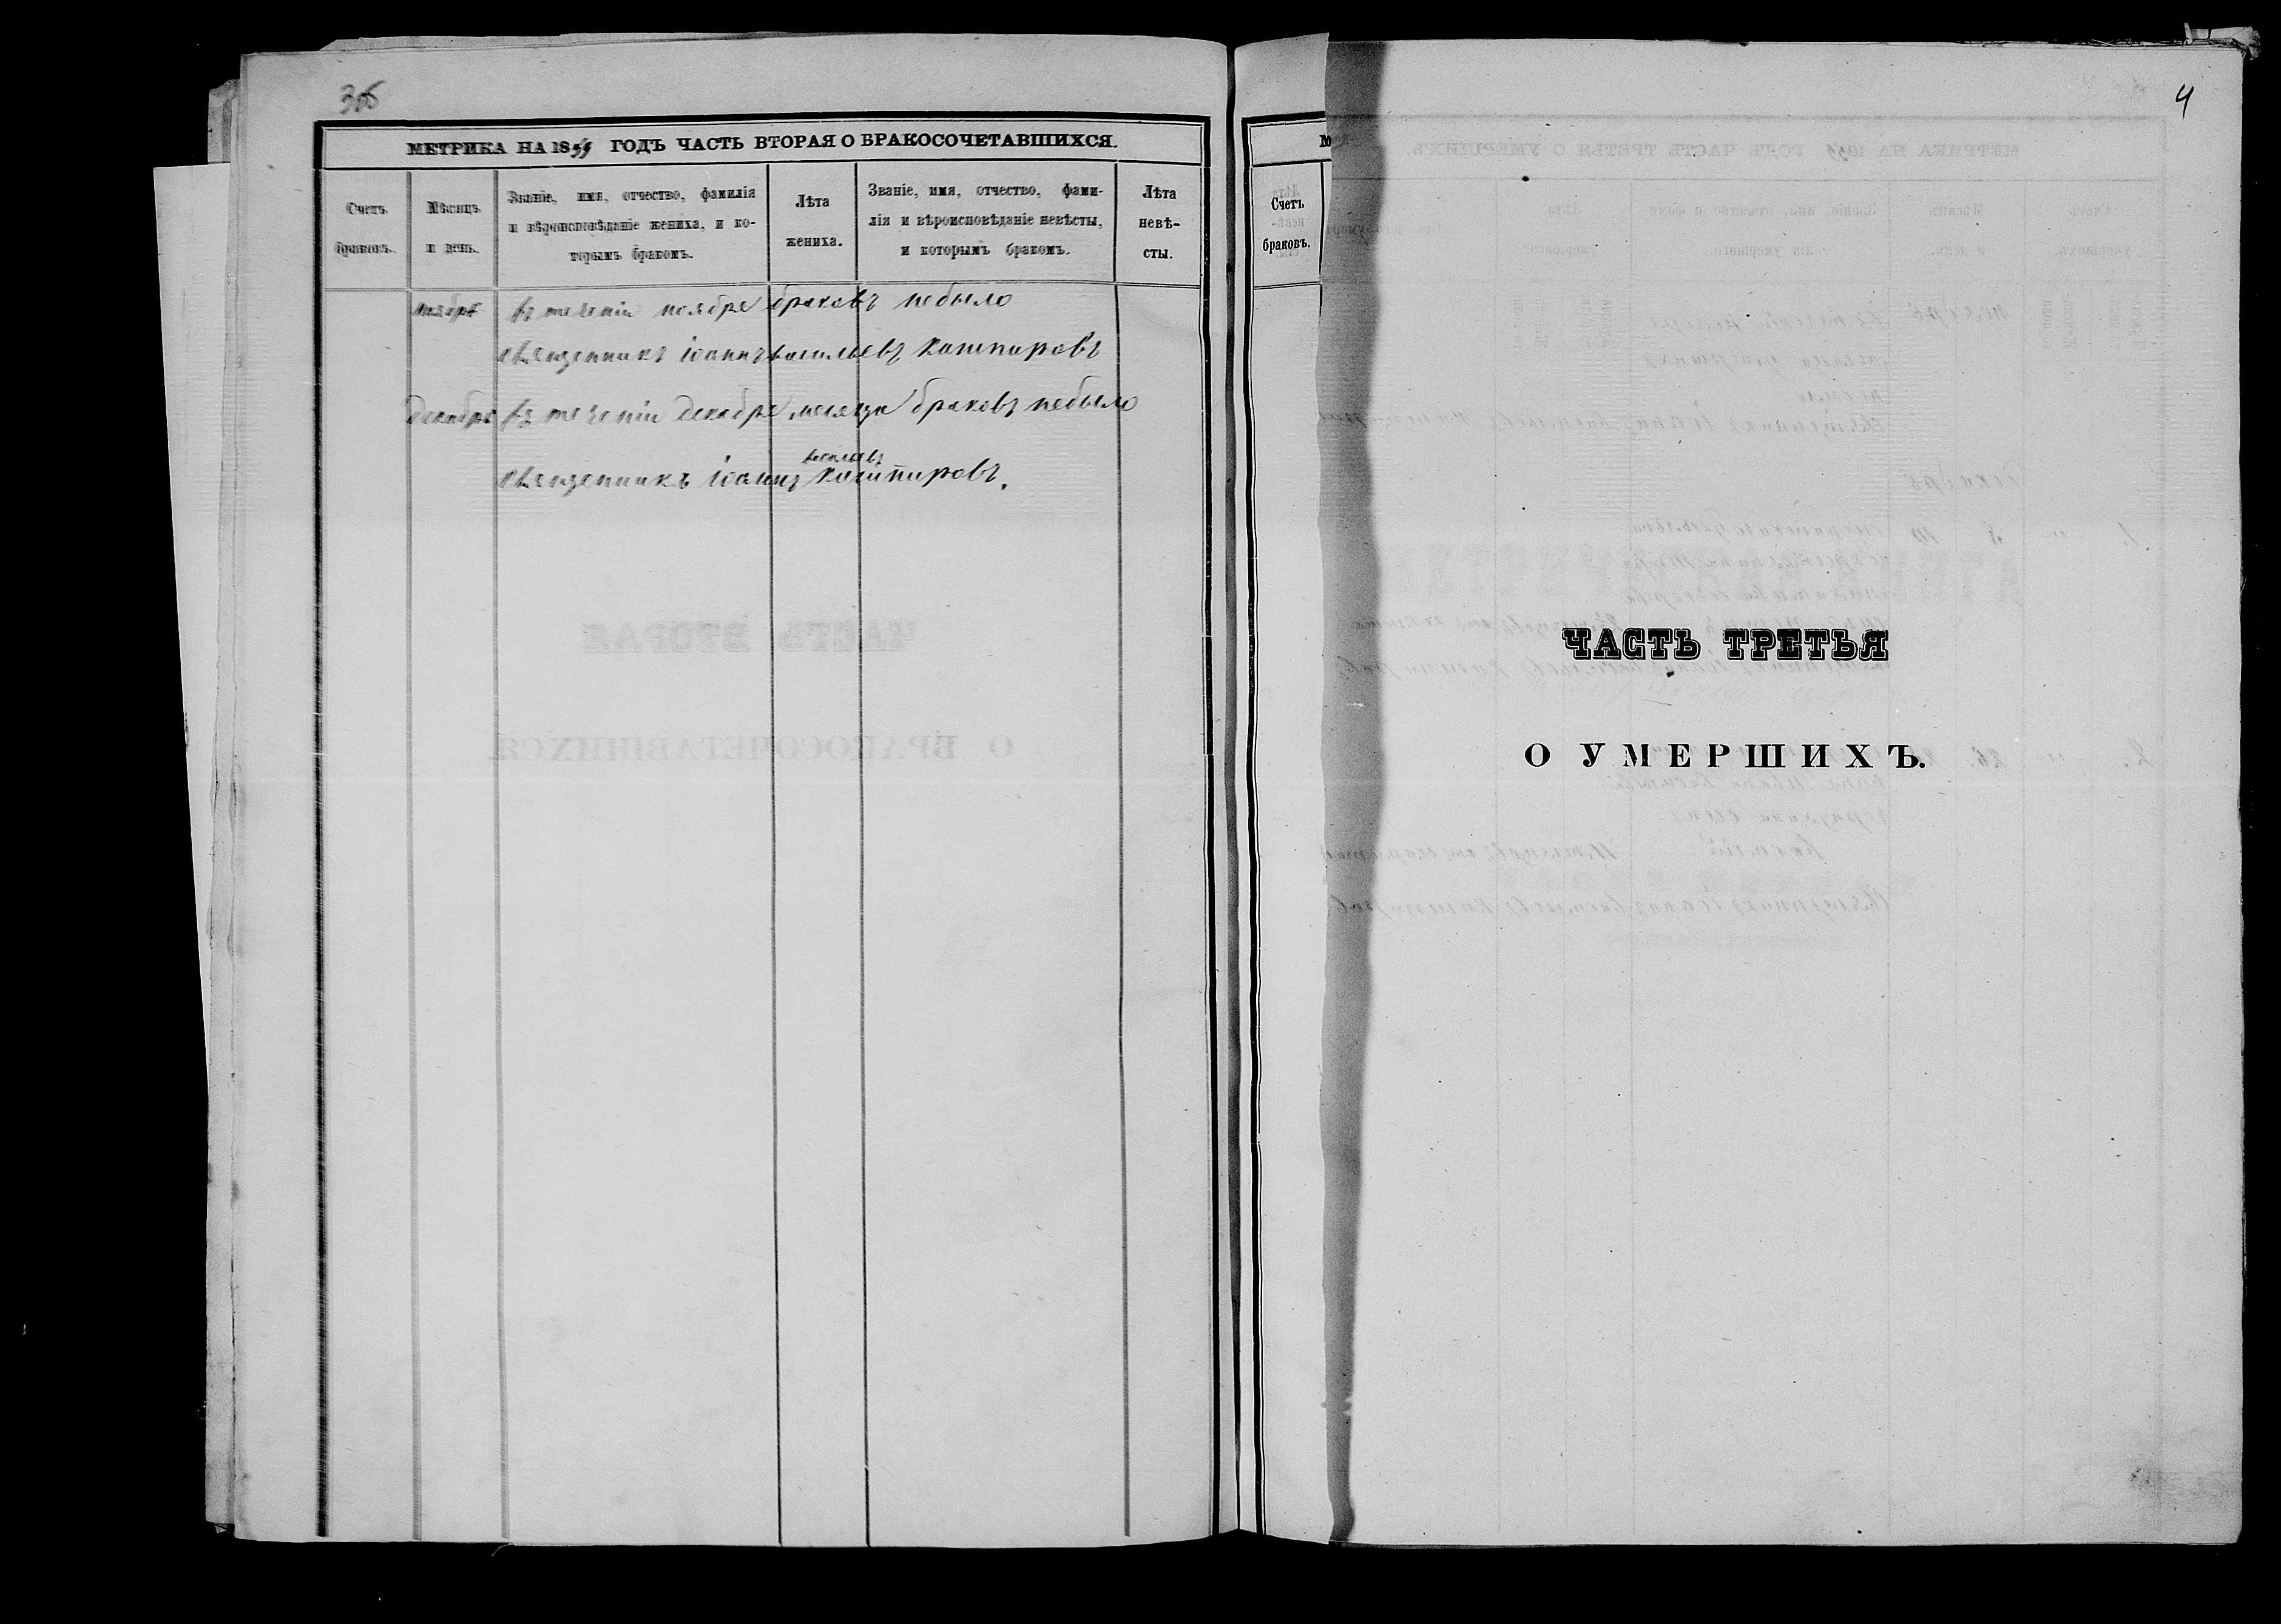 306
МЕТРИКА НА 1859 ГОДЪ ЧАСТЬ ВТОРАЯ О БРАКОСОЧЕТАВШИХСЯ.
Счетъ браковъ.
Мѣсяцъ и день.
Званіе, имя, отчество, фамилія
и вѣроисповѣданіе жениха, и ко-
торымъ бракомъ.
Лѣта
жениха.
Званіе, имя, отчество, фами-
лія и вѣроисповѣданіе невѣсты,
и которымъ бракомъ.
Лѣта
невѣ-
сты.
ноябрь въ теченіи ноября браковъ небыло
священникъ Іоаннъ васильевъ Кашпировъ
декабрь въ теченіи декабре месяца браковъ небыло
васильевъ
священникъ Іоаннъ Кашпировъ.
Счетъ
браковъ.
4
ЧАСТЬ ТРЕТЬЯ
О УМЕРШИХЪ.